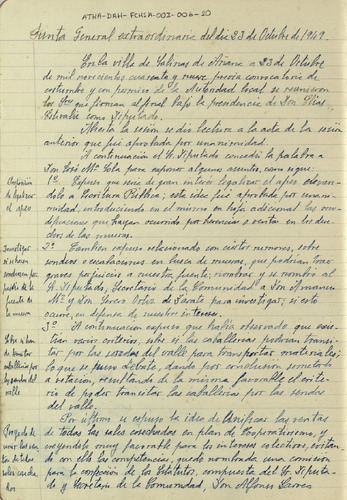 ATHA-DAH-FCHSA-002-006-20
Junta General extraordinaria del día 23 de Octubre de 1949.
En la villa de Salinas de Añana a 23 de Octubre
de mil novecientos cuarenta y nueve previa convocatoria de
costumbre y con permiso de la Autoridad local se reunieron
los Sres que firman al final bajo la presidencia de Don Elías
como Diputado.
Abierta la sesión se dió lectura a la acta de la sesión
anterior que fué aprobada por unanimidad.
A continuación el Sr. Diputado concedió la palabra a
Don José Mª para exponer algunos asuntos, como sigue:
Proposición
de legalizar
el apeo
1º Expuso que sería de gran interés legalizar el apeo elevan-
dolo a Escritura Pública; esta idea fué aprobada por unani-
midad, introduciendo en el mismo en hoja adicional las mo-
dificaciones que hayan ocurrido por herencias y ventas en los de-
rechos de las mueras.
Investigar
si se hacen
sondeos en
perjuicio de la
fuente de
la muera
2º También expuso relacionado con ciertos rumores, sobre
sondeos o excavaciones en busca de mueras, que podrían traer
graves perjuicios a nuestra fuente; nombrar y se nombró al
Sr. Diputado, Secretario de la Comunidad a Don Amancio
Mª y Don Ortiz de Zarate para investigar; si esto
ocurre, en defensa de nuestros intereses.
Sobre si han
de transitar
caballerías por
las sendas del
valle
3º A continuación expuso que había observado que exis-
tían varios criterios, sobre si las caballerías podrían transi-
tar por las sendas del valle para transportar materiales;
lo que se puso a debate, dando por conclusión sometido
a votación, resultando de la misma favorable el crite-
rio de poder transitar las caballerías por las sendas
del valle.
Proyecto de
unir las ven-
tas de todas
las sales
Por último se expuso la idea de unificar las ventas
de todas las sales cosechadas en plan de Cooperativas, y
creyéndolo muy favorable para los intereses colectivos, evitan-
do con ella las competencias, quedó nombrada una comisión
para la confección de los Estatutos, compuesta del Sr. Diputa-
do y Secretario de la Comunidad, Don Alfonso